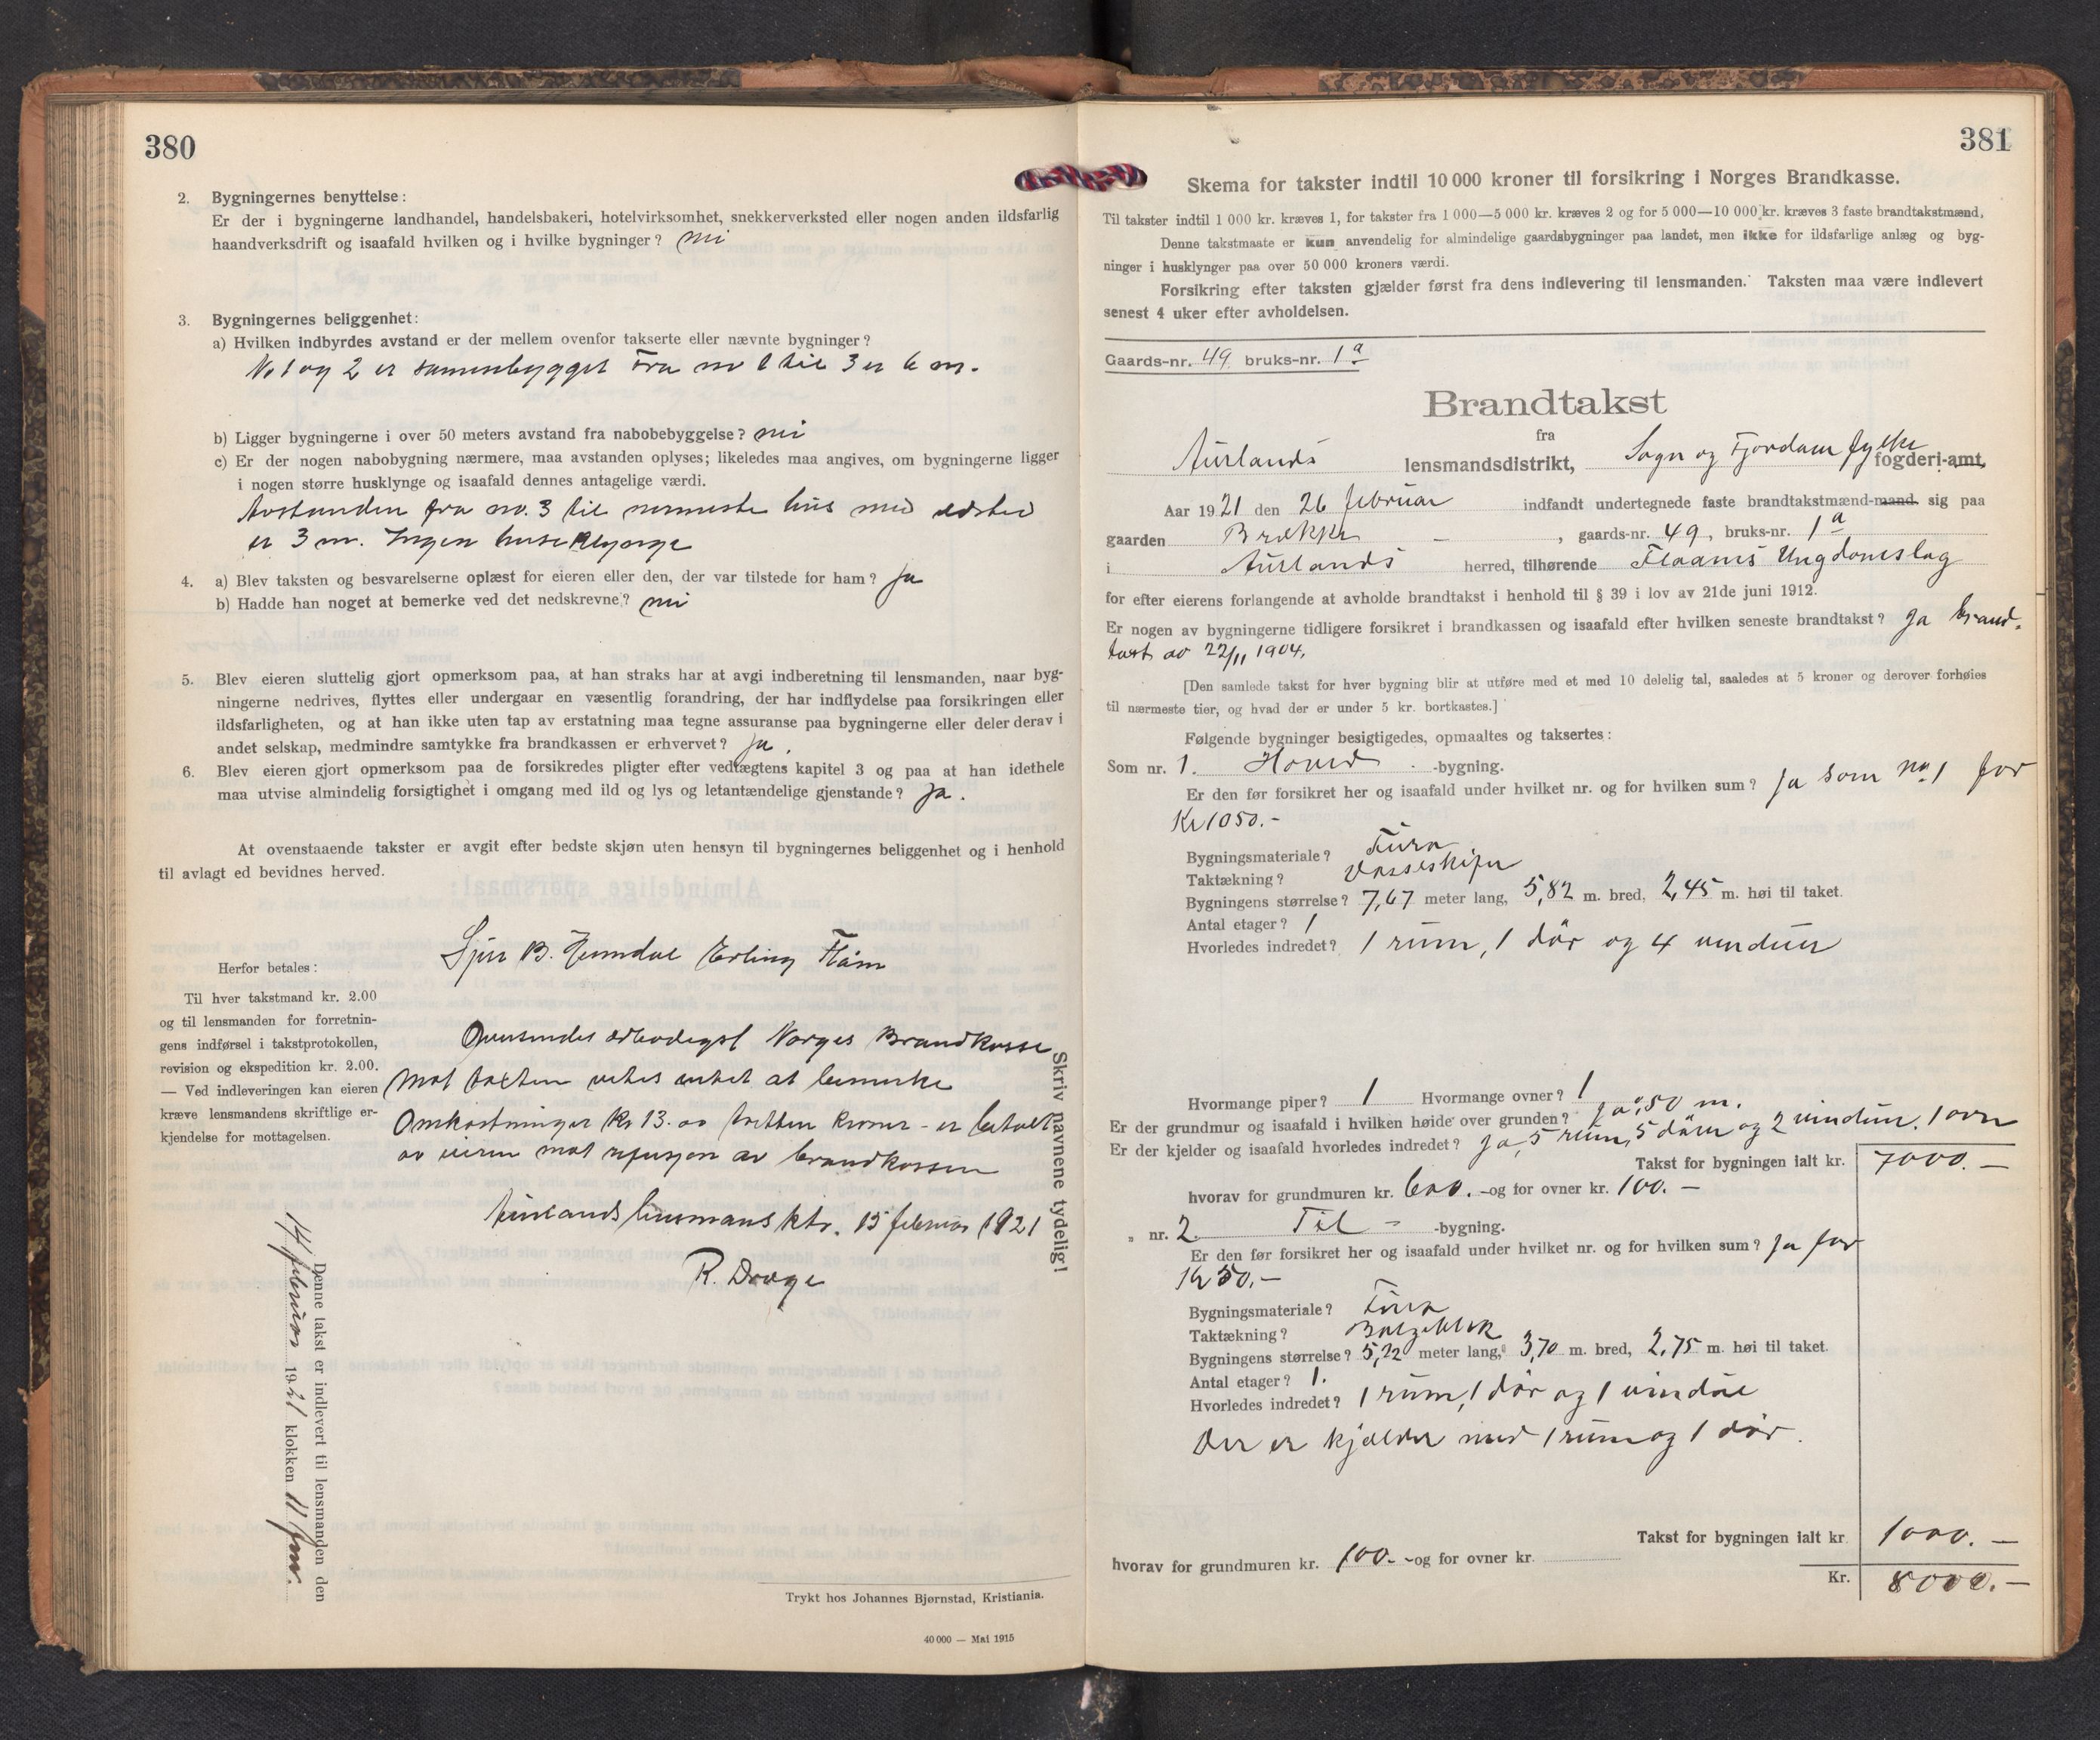 380
2. Bygningernes benyttelse:
Er der i bygningerne landhandel, handelsbakeri, hotelvirksomhet, snekkerverksted eller nogen anden ildsfarlig
haandverksdrift og isaafald hvilken og i hvilke bygninger? nei
3. Bygningernes beliggenhet:
a) Hvilken indbyrdes avstand er der mellem ovenfor takserte eller nævnte bygninger?
No 1 og 2 er sammenbygget Fra nr 1 til 3 er 6 m.
b) Ligger bygningerne i over 50 meters avstand fra nabobebyggelse? nei
c) Er der nogen nabobygning nærmere, maa avstanden oplyses; likeledes maa angives, om bygningerne ligger
i nogen større husklynge og isaafald dennes antagelige værdi.
Avstanden fra no. 3 til nermeste hus med ildsted
er 3 m. Ingen
4. a) Blev taksten og besvarelserne oplæst for eieren eller den, der var tilstede for ham? ja
b) Hadde han noget at bemerke ved det nedskrevne? nei
5. Blev eieren sluttelig gjort opmerksom paa, at han straks har at avgi indberetning til lensmanden, naar byg-
ningerne nedrives, flyttes eller undergaar en væsentlig forandring, der har indflydelse paa forsikringen eller
ildsfarligheten, og at han ikke uten tap av erstatning maa tegne assuranse paa bygningerne eller deler derav i
andet selskap, medmindre samtykke fra brandkassen er erhvervet? ja.
6. Blev eieren gjort opmerksom paa de forsikredes pligter efter vedtægtens kapitel 3 og paa at han idethele
maa utvise almindelig forsigtighet i omgang med ild og lys og letantændelige gjenstande? ja.
At ovenstaaende takster er avgit efter bedste skjøn uten hensyn til bygningernes beliggenhet og i henhold
til avlagt ed bevidnes herved.
Sjur B. Erling Flåm
Herfor betales:
Til hver takstmand kr. 2.00
og til lensmanden for forretnin-
gens indførsel i takstprotokollen,
revision og ekspedition kr. 2.00.
— Ved indleveringen kan eieren
kræve lensmandens skriftlige er-
kjendelse for mottagelsen.
Oversendes ærbødigst Norges Brandkasse
Mot taxten vites intet at bemerke
Omkostninger kr 13. av tretten kroner - er betalt
av eieren mot refusjon av brandkassen
Aurlands lensmansktr. 15 februar 1921
R. Drage
Skriv navnene tydelig!
Denne takst er indlevert til lensmanden den
14 februar 1921 klokken 11 fm.
Trykt hos Johannes Bjørnstad, Kristiania.
40 000 — Mai 1915
381
Skema for takster indtil 10 000 kroner til forsikring i Norges Brandkasse.
Til takster indtil 1 000 kr. kræves 1, for takster fra 1 000—5 000 kr. kræves 2 og for 5 000—10 000 kr. kræves 3 faste brandtakstmænd,
Denne takstmaate er kun anvendelig for almindelige gaardsbygninger paa landet, men ikke for ildsfarlige anlæg og byg-
ninger i husklynger paa over 50 000 kroners værdi.
Forsikring efter taksten gjælder først fra dens indlevering til lensmanden. Taksten maa være indlevert
senest 4 uker efter avholdelsen.
Gaards-nr. 49 bruks-nr. 1 a
Brandtakst
fra
Aurlands lensmandsdistrikt, Sogn og Fjordane fylke fogderi-amt.
Aar 1921 den 26 februar indfandt undertegnede faste brandtakstmænd-mand sig paa
gaarden Brekke - , gaards-nr. 49, bruks-nr. 1 a
i Aurlands herred, tilhørende Flaams Ungdomslag
for efter eierens forlangende at avholde brandtakst i henhold til § 39 i lov av 21de juni 1912.
Er nogen av bygningerne tidligere forsikret i brandkassen og isaafald efter hvilken seneste brandtakst? Ja brand-
taxt av 22/11 1904.
[Den samlede takst for hver bygning blir at utføre med et med 10 delelig tal, saaledes at 5 kroner og derover forhøies
til nærmeste tier, og hvad der er under 5 kr. bortkastes.]
Følgende bygninger besigtigedes, opmaaltes og taksertes:
Som nr. 1. Hoved -bygning.
Er den før forsikret her og isaafald under hvilket nr. og for hvilken sum? Ja som no 1 for
Kr 1050.-
Bygningsmateriale? Furu
Taktækning? Vosseskifer
Bygningens størrelse? 7,67 meter lang, 5,82 m. bred, 2,45 m. høi til taket.
Antal etager? 1
Hvorledes indredet? 1 rum, 1 dør og 4 vinduer
Hvormange piper? 1 Hvormange ovner? 1
Er der grundmur og isaafald i hvilken høide over grunden? ja 0,50 m.
Er der kjelder og isaafald hvorledes indredet? Ja, 5 rum, 5 dører og 2 vinduer. 1 ovn
Takst for bygningen ialt kr. 7000.-
hvorav for grundmuren kr. 600. - og for ovner kr. 100. -
„ nr. 2. Til - -bygning.
Er den før forsikret her og isaafald under hvilket nr. og for hvilken sum? Ja for
Kr 50.-
Bygningsmateriale? Furu
Taktækning? Bølgeblik
Bygningens størrelse? 5,22 meter lang, 3,70 m. bred, 2,75 m. høi til taket.
Antal etager? 1.
Hvorledes indredet? 1 rum, 1 dør og 1 vindue
Der er kjelder med 1 rum og 1 dør.
Takst for bygningen ialt kr 1000.-
hvorav for grundmuren kr. 100. - og for ovner kr.
Kr. 8000.-